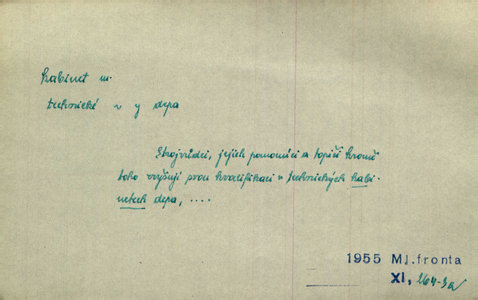 kabinet m.
technické v y depa
Strojvůdci, jejich pomocníci a topiči kromě
toho zvyšují svou kvalifikaci v technických kabi-
netech depa, ....
1955 Ml.fronta
XI, 264-3a